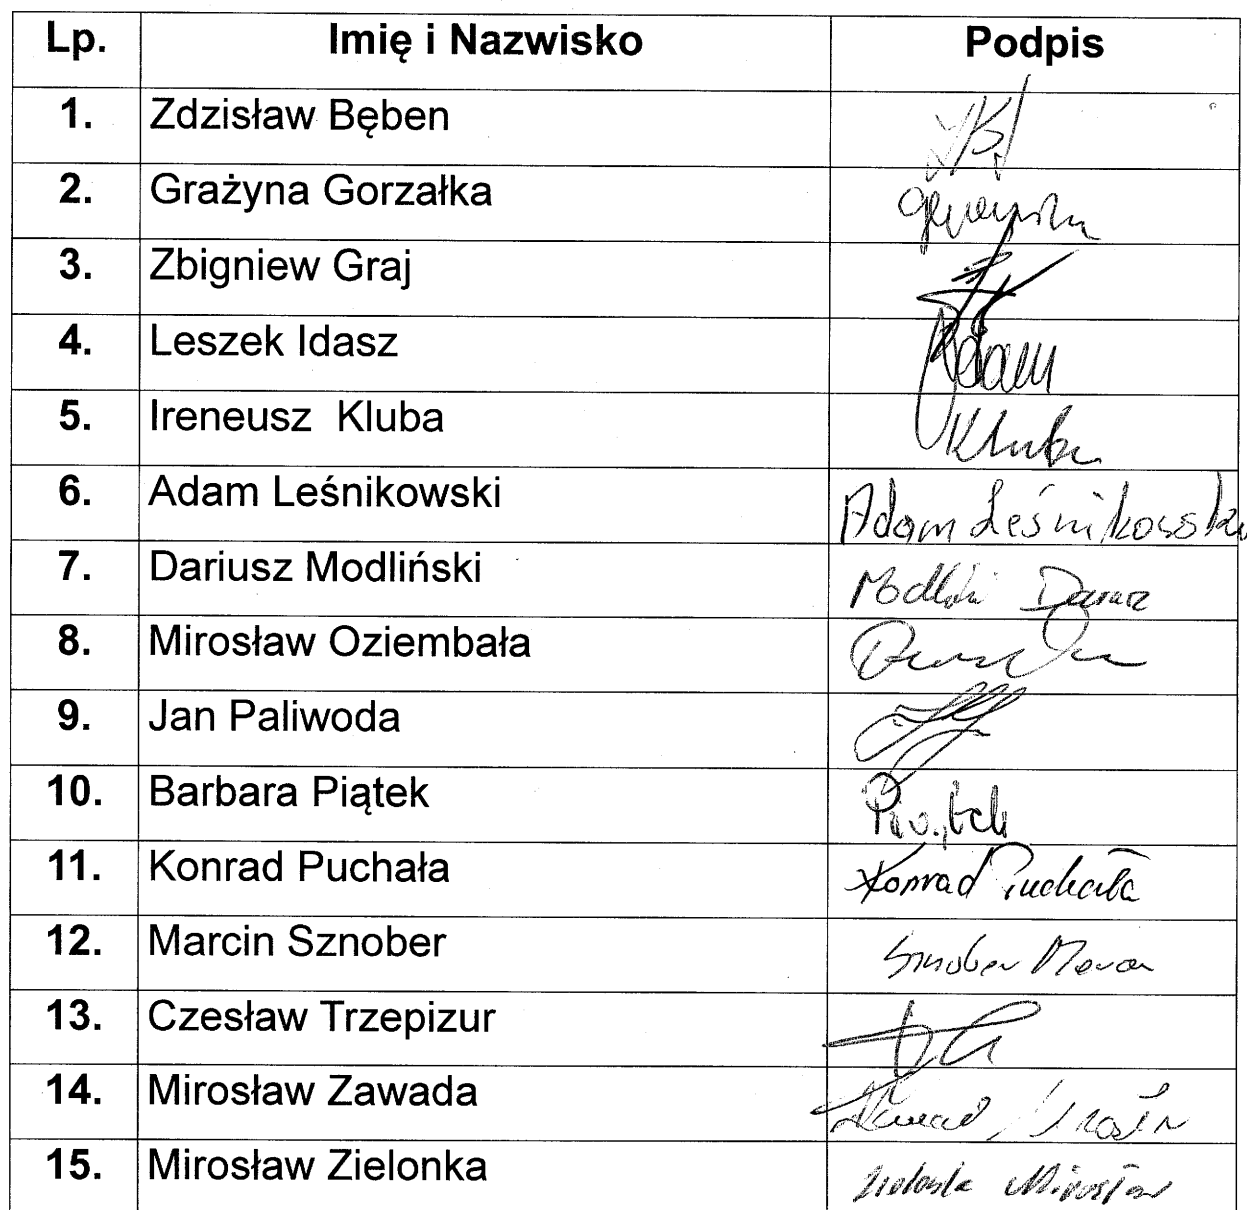 Lp. Imię i Nazwisko Podpis
1. Zdzisław Bęben
2. Grażyna Gorzałka
3. Zbigniew Graj
4. Leszek Idasz
5. Ireneusz Kluba Kluba
6. Adam Leśnikowski Adam Leśnikowski
7. Dariusz Modliński
8. Mirosław Oziembała
9. Jan Paliwoda
10. Barbara Piątek Piątek
11. Konrad Puchała Konrad Puchała
12. Marcin Sznober Sznober Marcin
13. Czesław Trzepizur
14. Mirosław Zawada
15. Mirosław Zielonka Zielonka Mirosław